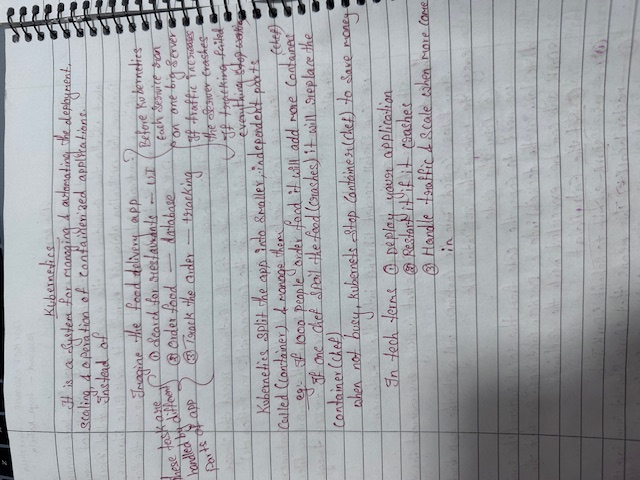 Kubernetics
It is a System for managing & automating the deployment,
scaling, & operation of containerized applications.
Instead of
Imagine the food delivery app
These task are
handled by different
parts of app
① Search for restaurants — UI
② Order food — database
③ Track the order — tracking
Before Kubernetics
Each Service ran
on one big Server
If traffic increases
the Server crashes
If tracking failed
everything stop working
Kubernetics Split the app into Smaller, independent parts
Called (Container) & manage them
eg: If 1000 people order food it will add more Containers (chef)
If one chef Spoil the food (crashes) it will replace the
Container (chef)
when not busy, Kubernets Stop Container (chef) to Save money
In tech terms ① Deploy your application
② Restart it if it crashes
③ Handle traffic & Scale when more come
in